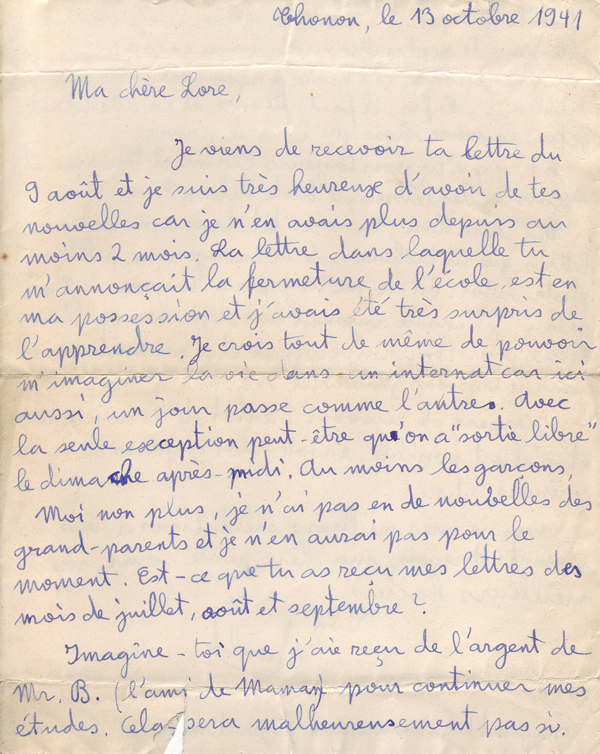 Thonon, le 13 octobre 1941
Ma chère Lore,
Je viens de recevoir ta lettre du
9 août et je suis très heureuse d'avoir de tes
nouvelles car je n'en avais plus depuis au
moins 2 mois. La lettre dans laquelle tu
m'annonçait la fermeture de l'école est en
ma possession et j'avais été très surpris de
l'apprendre. Je crois tout de même de pouvoir
m'imaginer la vie dans un internat car ici
aussi, un jour passe comme l'autre. Avec
la seule exception peut-être qu'on a "sortie libre"
le dimache après-midi. Au moins les garçons,
Moi non plus, je n'ai pas en de nouvelles des
grand-parents et je n'en aurai pas pour le
moment. Est-ce que tu as reçu mes lettres des
mois de juillet, août et septembre?
Imagine-toi que j'aie reçu de l'argent de
Mr. B. (l'ami de Maman) pour continuer mes
études. Cela sera malheureusement pas si.